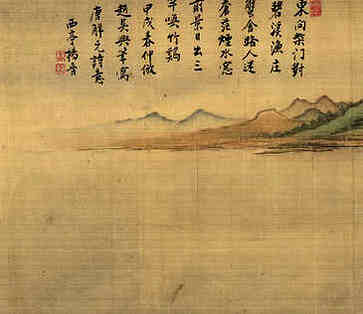 東向柴門對
碧溪漁庄
路人迷
煙水窓
前景日出三
竿喚竹鷄
甲戌春仲倣
趙吳興筆寫
唐解元詩意
西亭楊晋